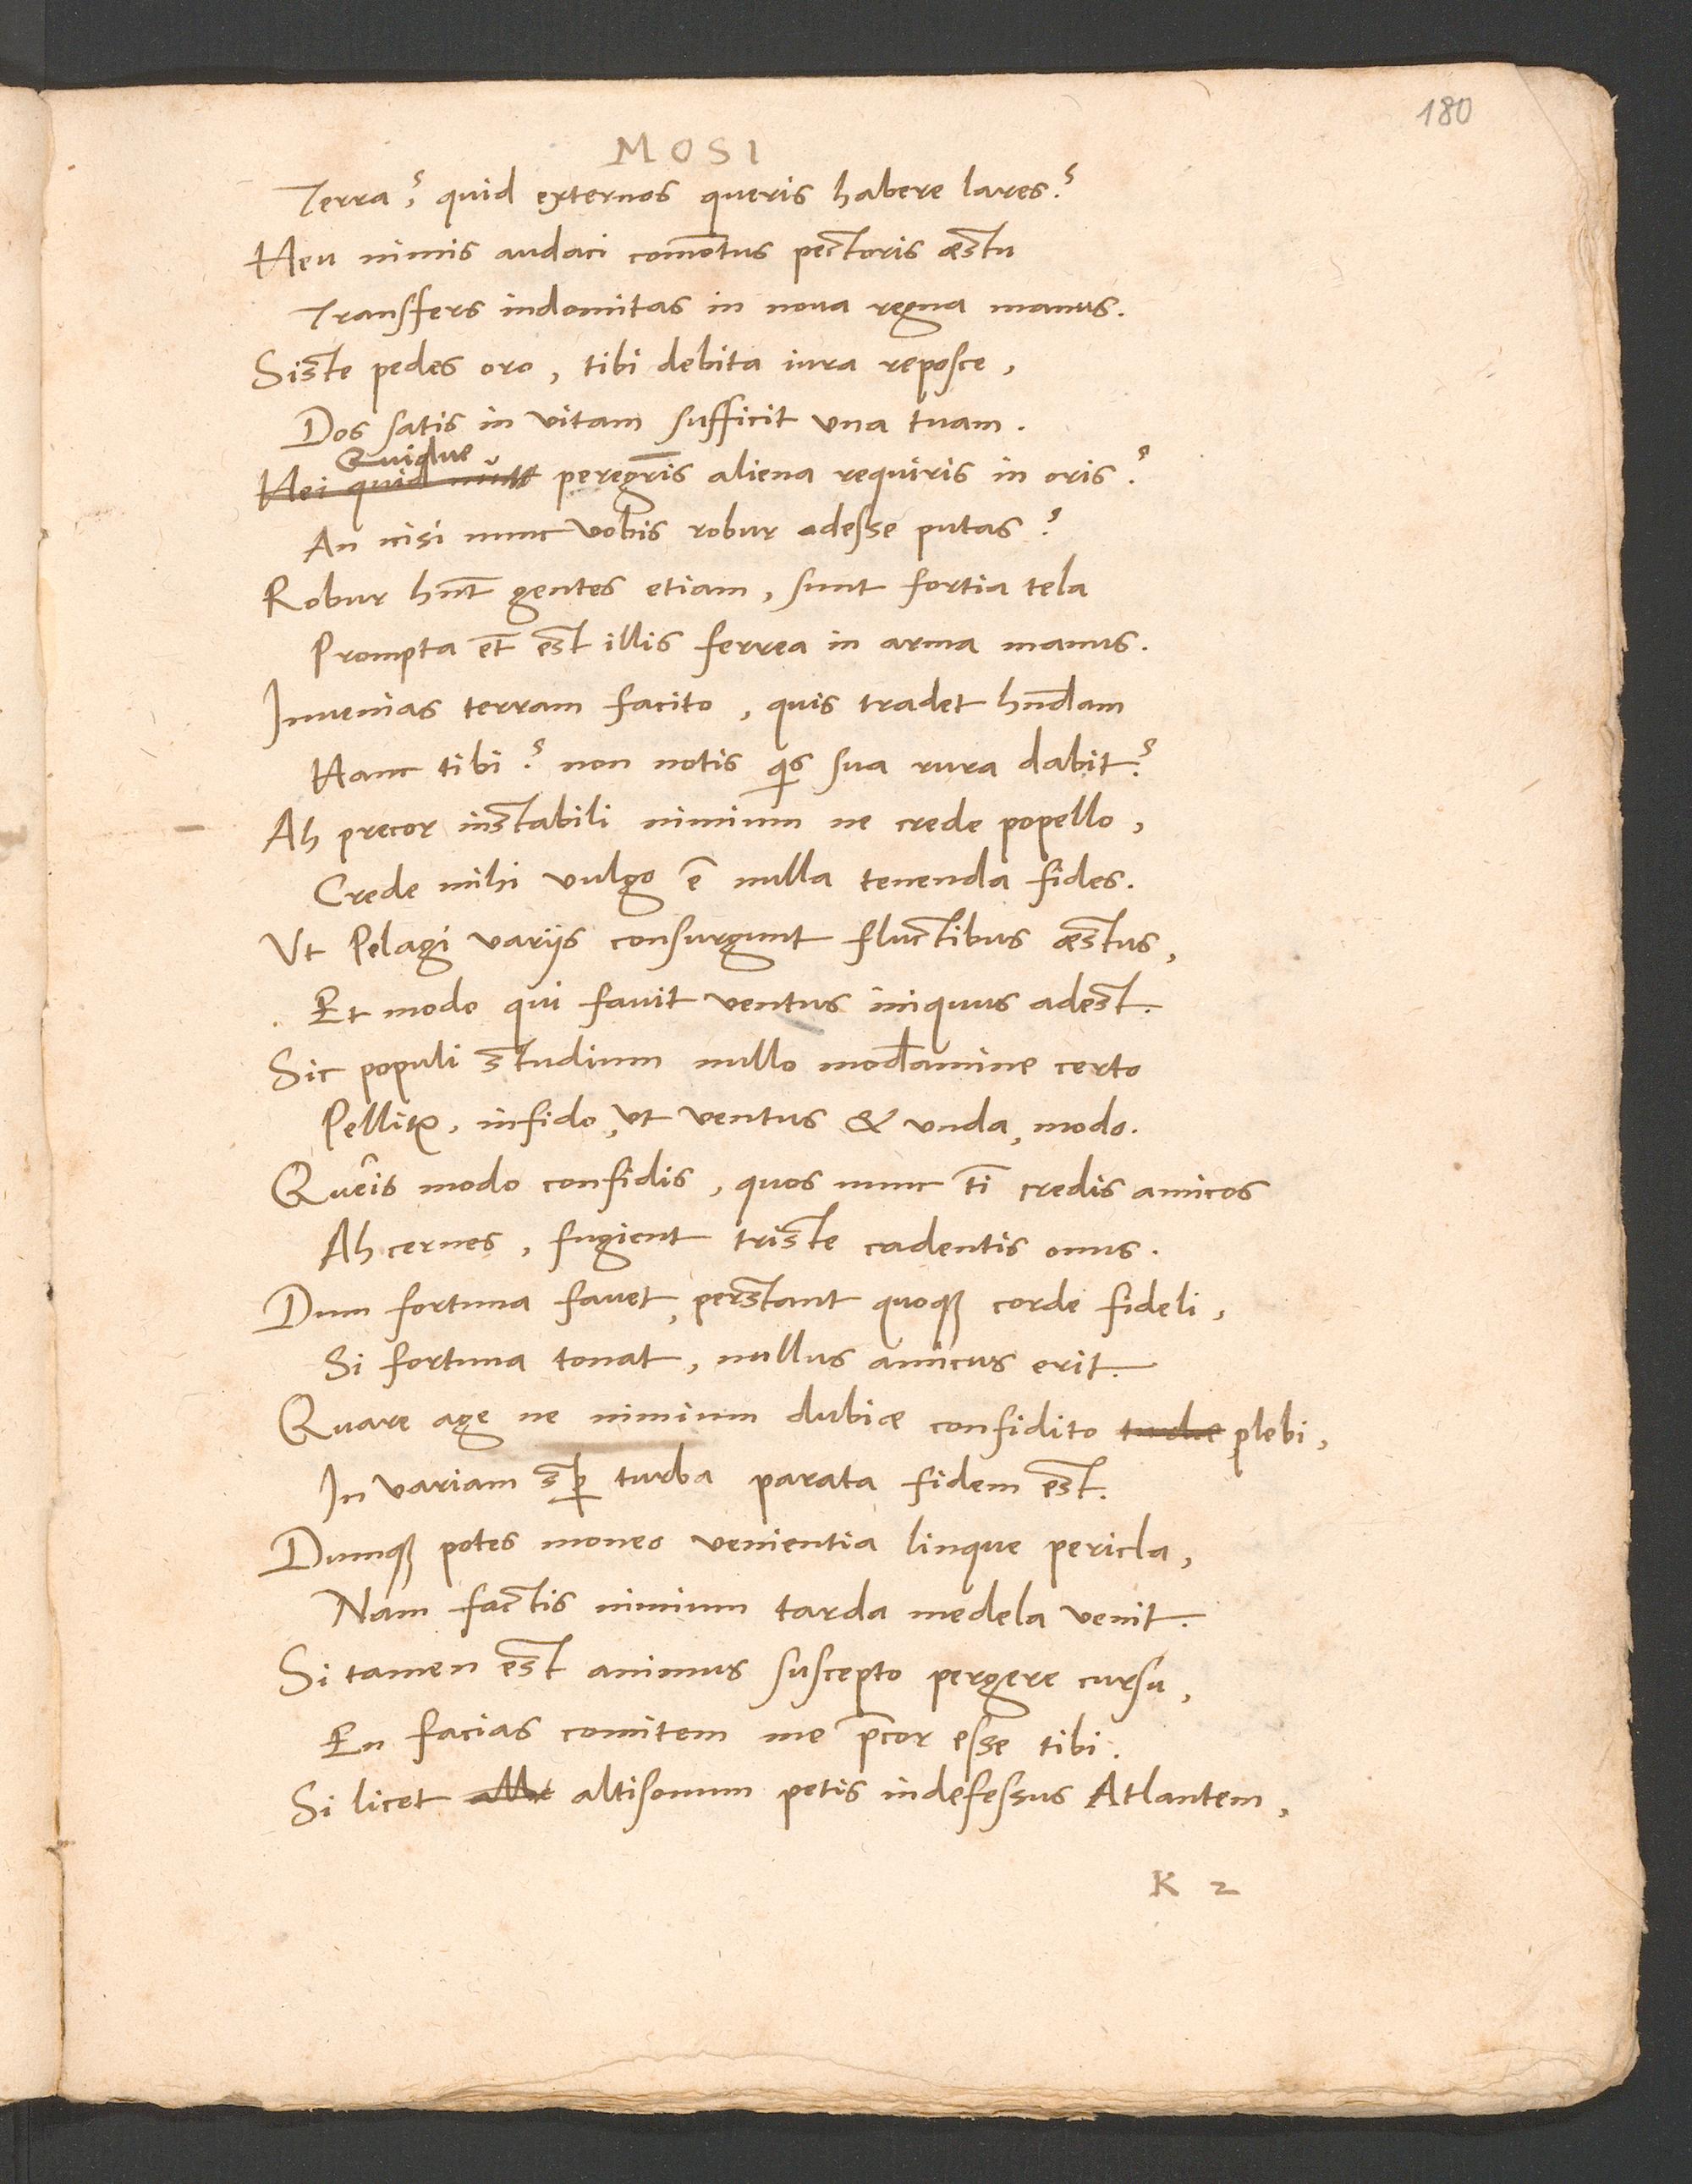 180
MOSI
Terra? quid externos queris habere lares?
Heu nimis audaci com̄otus pectoris æstu
Transfers indomitas in noua regna manus.
Siste pedes oro, tibi debita iura reposce,
Dos satis in vitam sufficit una tuam.
Quidue
Hei quid peregr̄is aliena requiris in oris?
An nisi nunc vobis robur adesse putas?
Robur hn̄t gentes etiam, sunt fortia tela
Prompta et̄ est illis ferrea in arma manus.
Inuenias terram facito, quis tradet hn̄dam
Hanc tibi? non notis q̄s sua rura dabit?
Ah precor instabili nimium ne crede popello,
Crede mihi vulgo ē nulla tenenda fides.
Vt Pelagi varijs consurgunt fluctibus æstus,
Et modo qui fauit ventus iniquus adest.
Sic populi studium nullo mod̄amine certo
Pellitr, infido, vt ventus & unda, modo.
Queîs modo confidis, quos nunc tī credis amicos
Ah cernes, fugient triste cadentis onus.
Dum fortuna fauet, perstant quoqȝ corde fideli,
Si fortuna tonat, nullus amicus erit.
Quare age ne nimium dubiæ confidito plebi,
In variam sp̄ turba parata fidem est.
Dumqȝ potes moneo venientia linque pericla,
Nam factis nimium tarda medela venit.
Si tamen est animus suscepto pergere cursu,
En facias comitem me p̄cor esse tibi.
Si licet altisonum petis indefessus Atlantem,
K 2